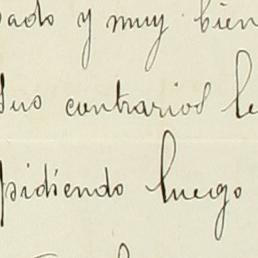 sado y muy bien
suo contrarios le
pidiendo luego